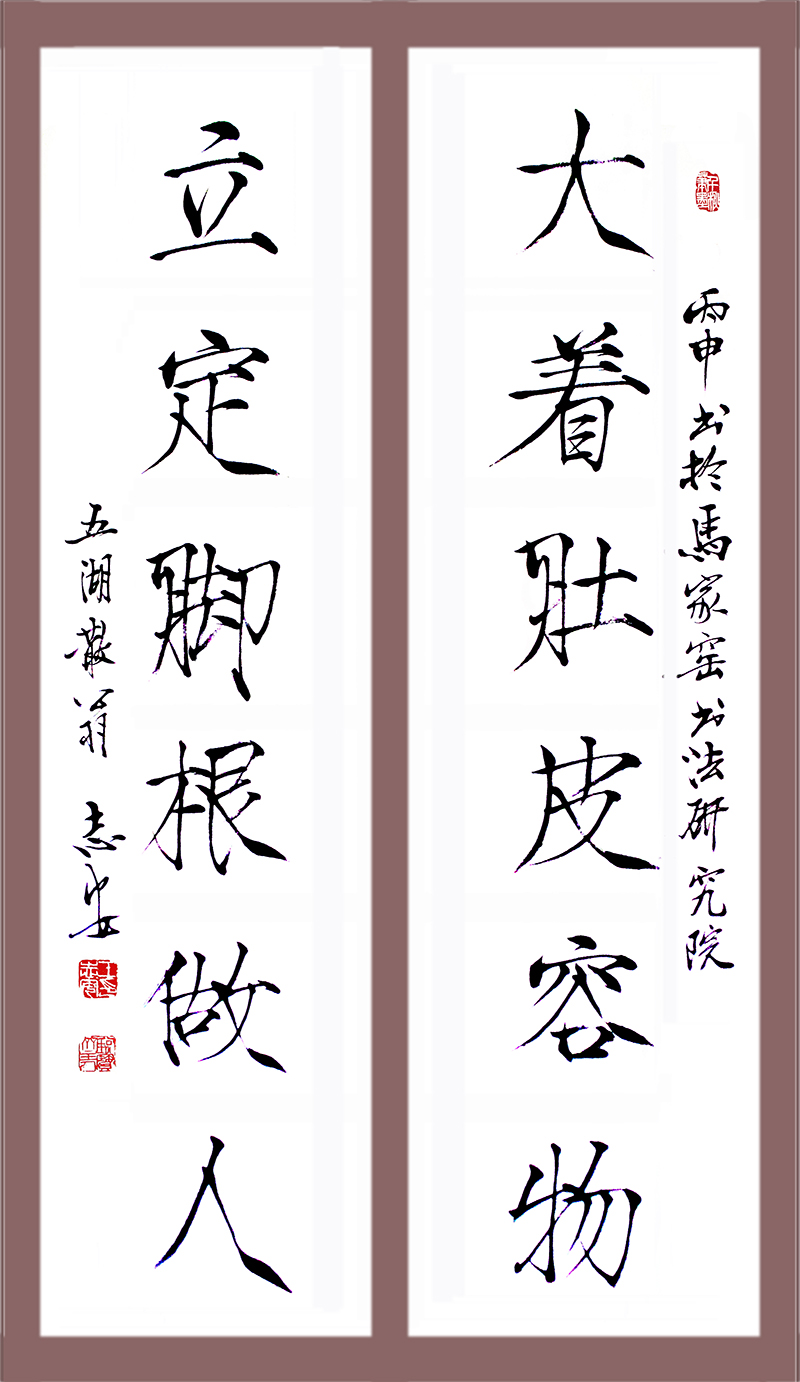 丙申书於馬家窑书法研究院
大着肚皮容物
立定脚根做人
五湖散翁 志安